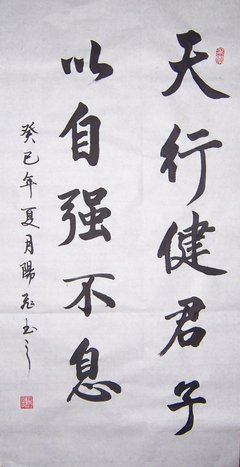 天行健君子
以自强不息
癸巳年夏月陽